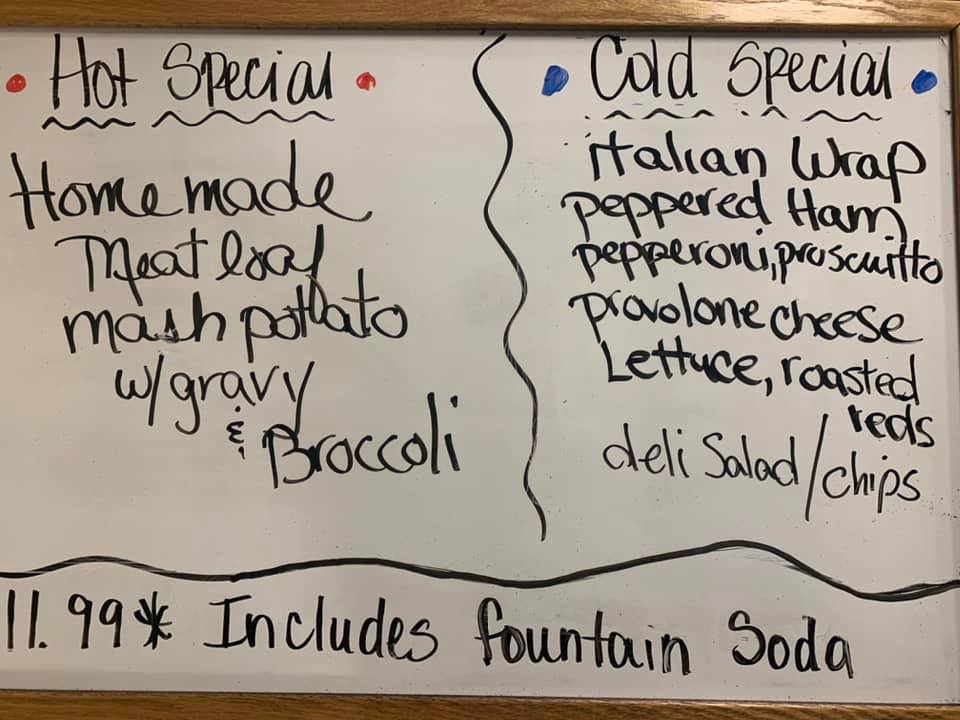 Hot Special
Homemade
Meatloaf
mash potlato
w/gravy
&
Broccoli
Cold Special
italian Wrap
peppered Ham,
pepperoni, proscuitto
provolone cheese
Lettuce, roasted
reds
deli Salad/chips
11.99* Includes fountain Soda